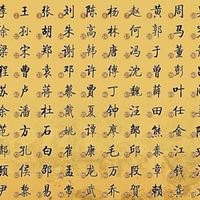 李 王 张 刘 陈 杨 赵 黄 周
徐 孙 胡 朱 高 林 何 郭 马
梁 宋 郑 谢 韩 唐 冯 于 董
程 曹 袁 邓 许 傅 沈 曾 彭
苏 卢 蒋 蔡 贾 丁 魏 薛 叶
余 潘 杜 戴 夏 钟 汪 田 任
范 方 石 姚 谭 廖 邹 熊 金
郝 孔 白 崔 康 毛 邱 秦 江
顾 侯 邵 孟 龙 万 段 章 钱
尹 黎 易 常 武 乔 贺 赖 龚